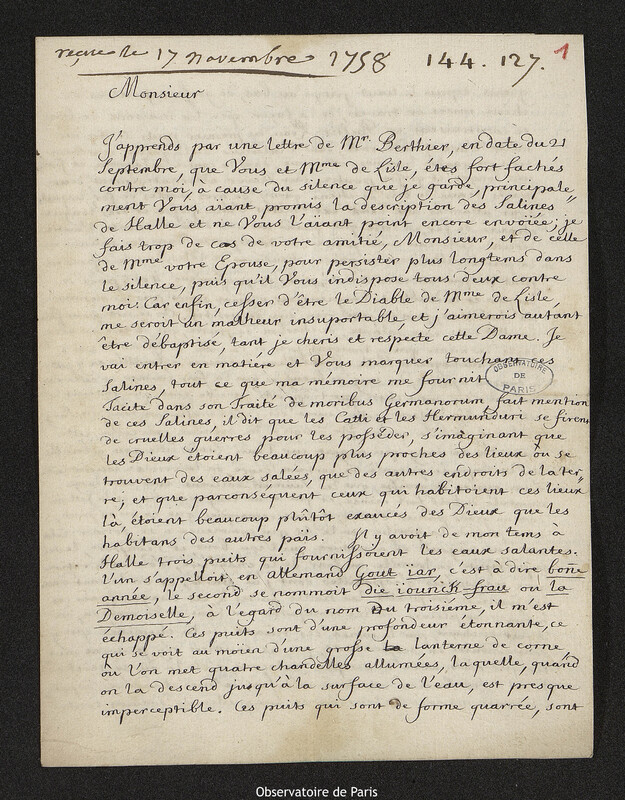 reçue le 17 novembre 1758 144. 127. 1
Monsieur
J'apprends par une lettre de Mr. Berthier, en date du 21
Septembre, que Vous et Mme de Lisle, étes fort fachés
contre moi, à cause du silence que je garde, principale
ment Vous aïant promis la description des Salines
de Halle et ne Vous l'aïant point encore envoïée; je
fais trop de cas de votre amitié, Monsieur, et de celle
de Mme votre Epouse, pour persister plus longtems dans
le silence, puis qu'il Vous indispose tous deux contre
moi. Car enfin, cesser d'être le Diable de Mme de Lisle,
me seroit un malheur insuportable, et j'aimerois autant
être débaptisé, tant je cheris et respecte cette Dame. Je
vai entrer en matiére et Vous marquer touchant ces
Salines, tout ce que ma mémoire me fournit.
OBSERVATOIRE DE PARIS
Tacite dans son Traité de moribus Germanorum, fait mention
de ces Salines, il dit que les Catti et les Hermunduri se firent
de cruelles guerres pour les posséder, s'imaginant que
les Dieux étoient beaucoup plus proches des lieux où se
trouvent des eaux salées, que des autres endroits de la ter"
re; et que parconséquent ceux qui habitoient ces lieux
là, étoient beaucoup plûtôt exaucés des Dieux que les
habitans des autres païs. Il y avoit de mon tems à
Halle trois puits qui fournissoient les eaux salantes.
l'un s'appelloit en allemand Gout ïar, c'est à dire bone
année, le second se nommoit die iounick frau ou la
Demoiselle, à l'egard du nom du troisiéme, il m'est
échappé. Ces puits sont d'une profondeur étonnante, ce
qui se voit au moïen d'une grosse lanterne de corne,
où l'on met quatre chandelles allumées, laquelle, quand
on la descend jusqu'à la surface de l'eau, est presque
imperceptible. Ces puits qui sont de forme quarrée, sont
Observatoire de Paris